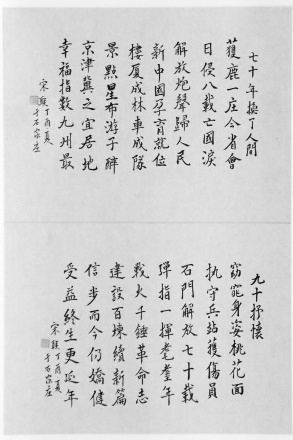 七十年换了人間
獲鹿一庄今省會
日侵八載亡國淚
解放炮聲歸人民
新中國孕育就位
樓厦成林車成隊
景點星布游子醉
京津冀之宜居地
幸福指數九州最
丁酉夏
于石家庄
九十抒懷
窈窕身姿桃花面
执守兵站護傷員
石門解放七十載
彈指一揮耄耋年
戰火千錘革命志
建設百煉續新篇
信步而今仍嬌健
受益終生更延年
丁酉夏
于石家庄